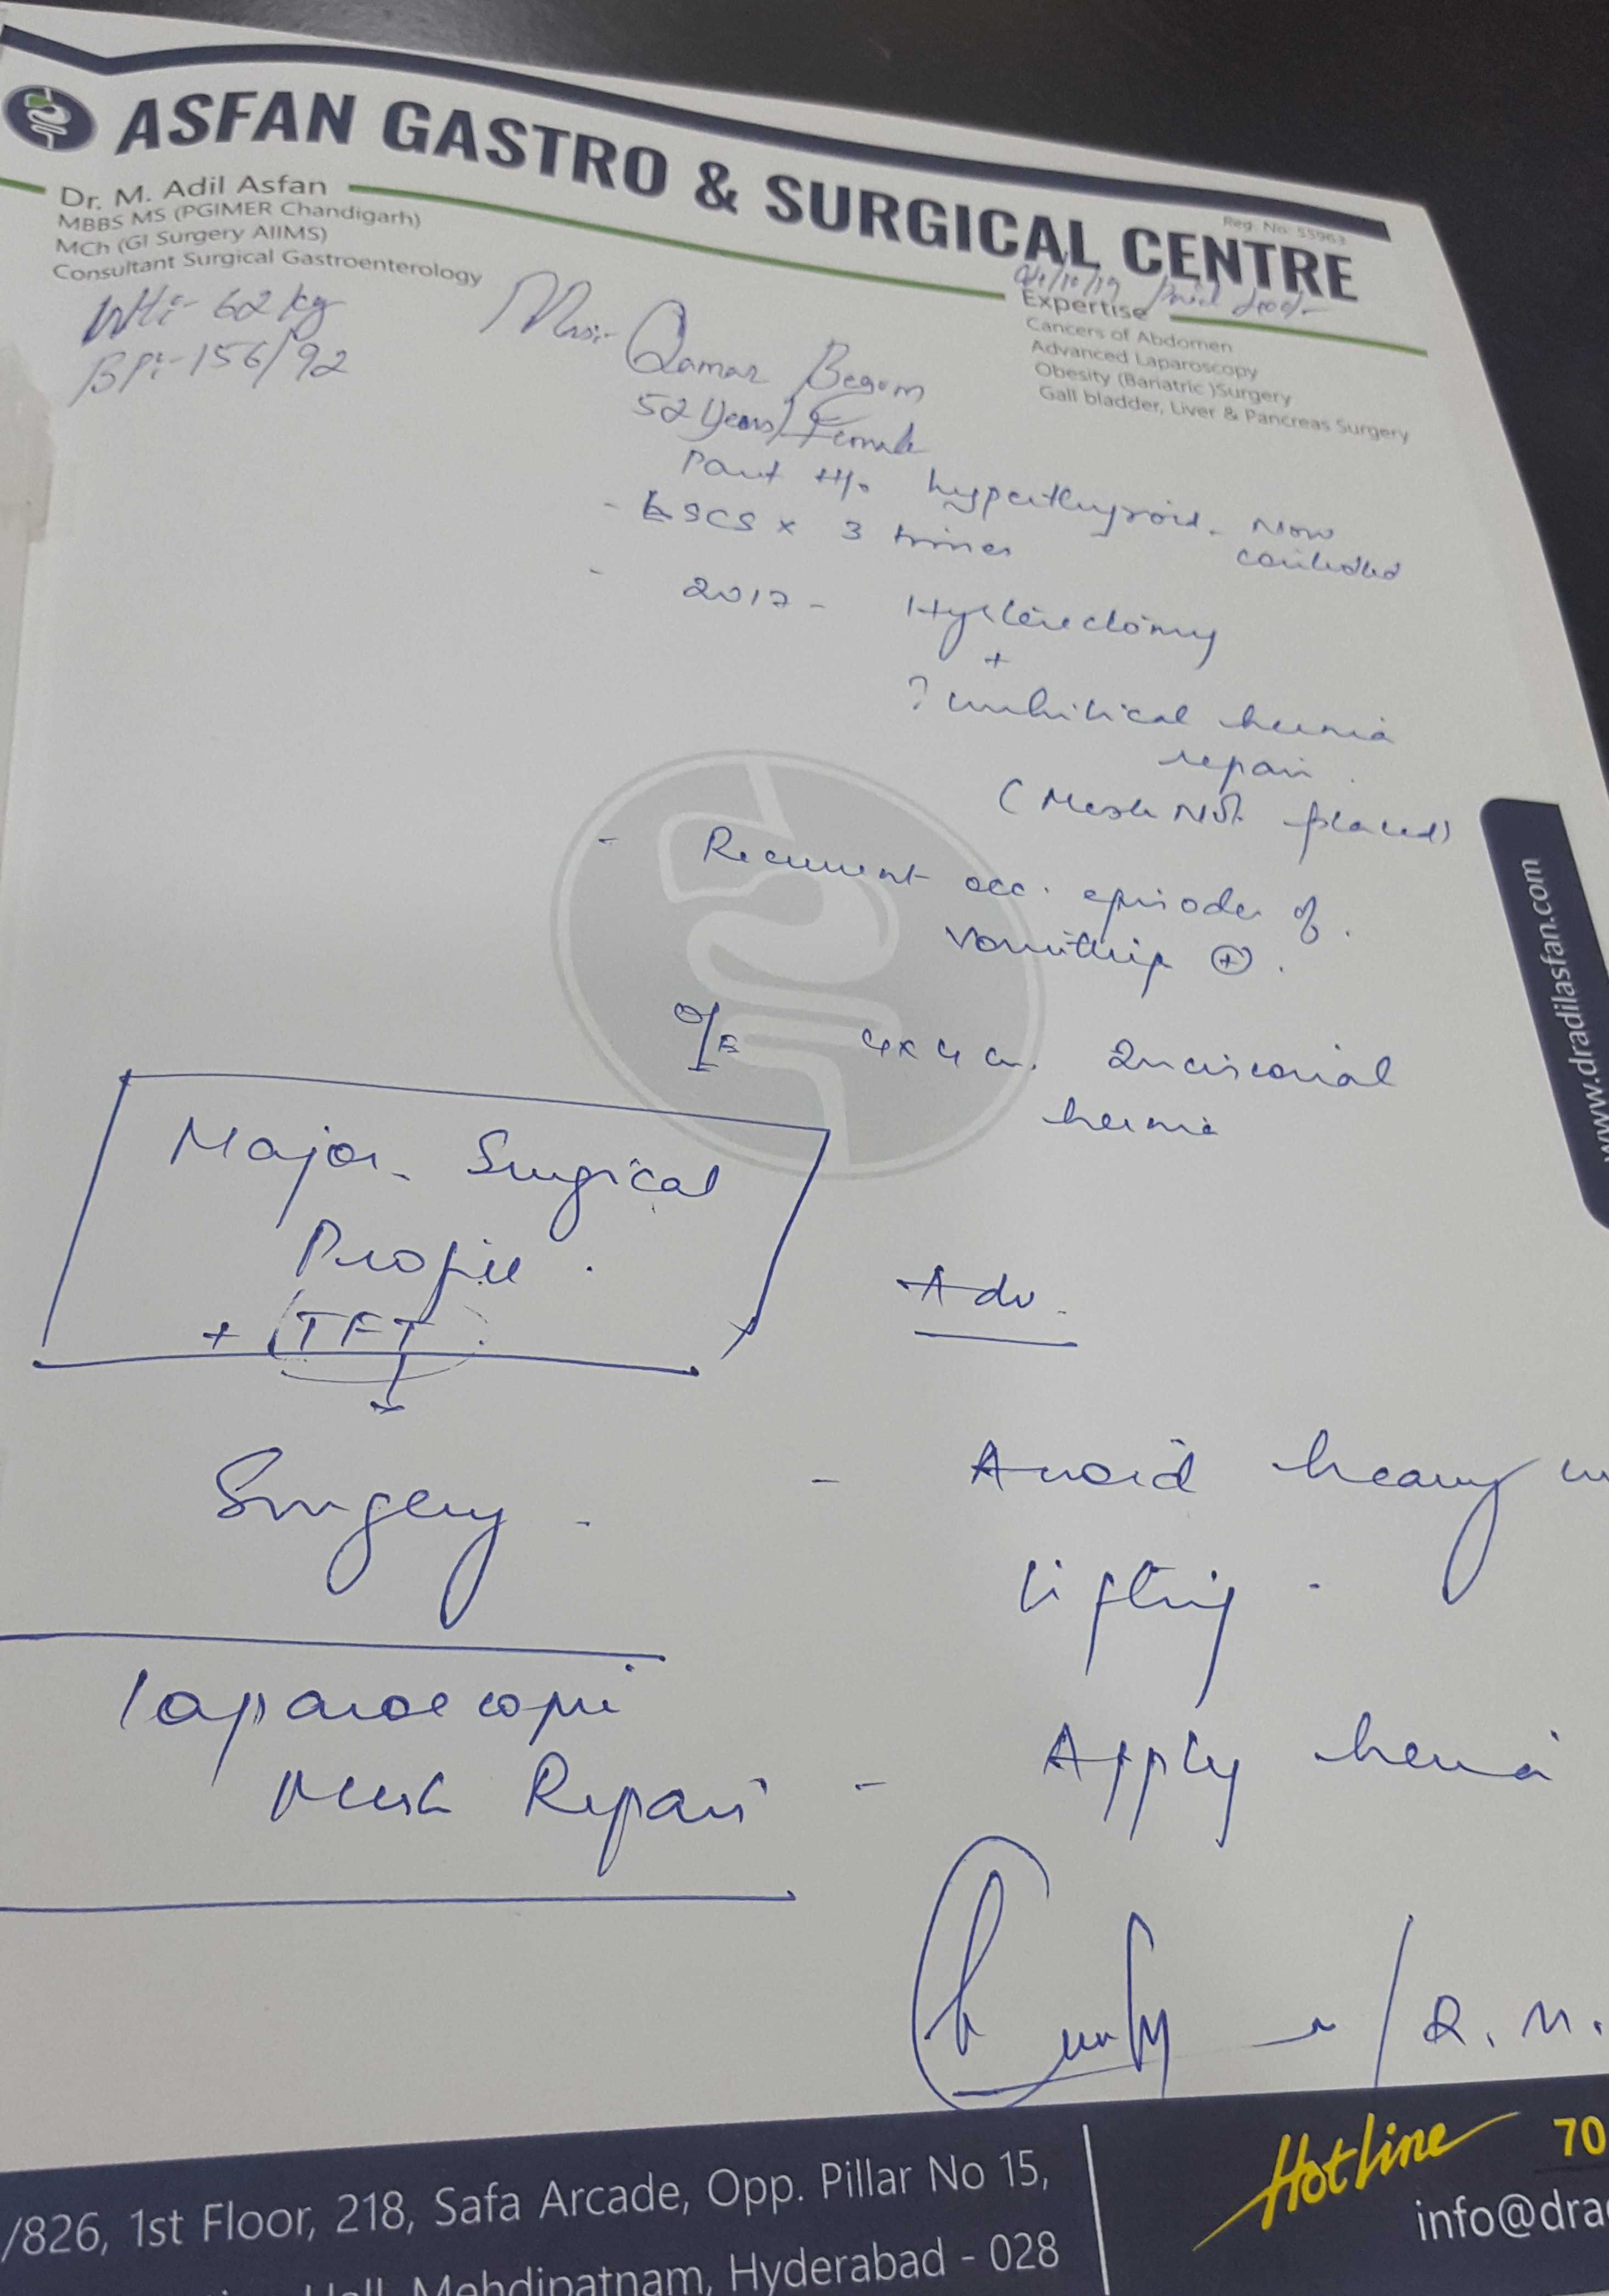 ASFAN GASTRO & SURGICAL CENTRE
Reg. No: 55963
Dr. M. Adil Asfan
MBBS MS (PGIMER Chandigarh)
MCh (GI Surgery AIIMS)
Consultant Surgical Gastroenterology
Expertise
Cancers of Abdomen
Advanced Laparoscopy
Obesity (Bariatric )Surgery
Gall bladder, Liver & Pancreas Surgery
Wt:- 62 kg
BP:- 156/92
Mrs:- Qamar Begum
52 Years/Female
Past H/o hyperthyroid - Now
controlled
- LSCS x 3 times
- 2017 - Hysterectomy
+
? umbilical hernia
repair.
(Mesh Not placed)
- Recurrent occ. episodes of
vomiting (+).
O/E 4x4 cm. Incisional
hernia
Major Surgical
Profile.
+ (TFT)
Surgery -
laparoscopic
Mesh Repair
Adv.
- Avoid heavy
lifting.
- Apply hernia
www.dradilasfan.com
/826, 1st Floor, 218, Safa Arcade, Opp. Pillar No 15,
Mehdipatnam, Hyderabad - 028
Hotline 70
info@dra